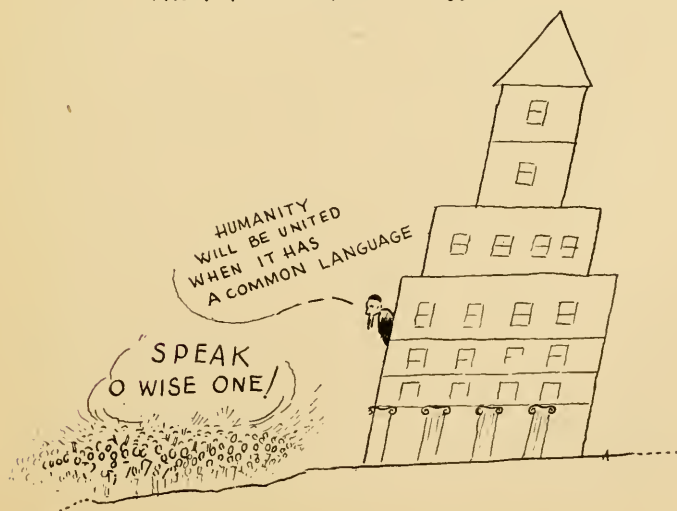 HUMANITY
WILL BE UNITED
WHEN IT HAS
A COMMON LANGUAGE
SPEAK
O WISE ONE!